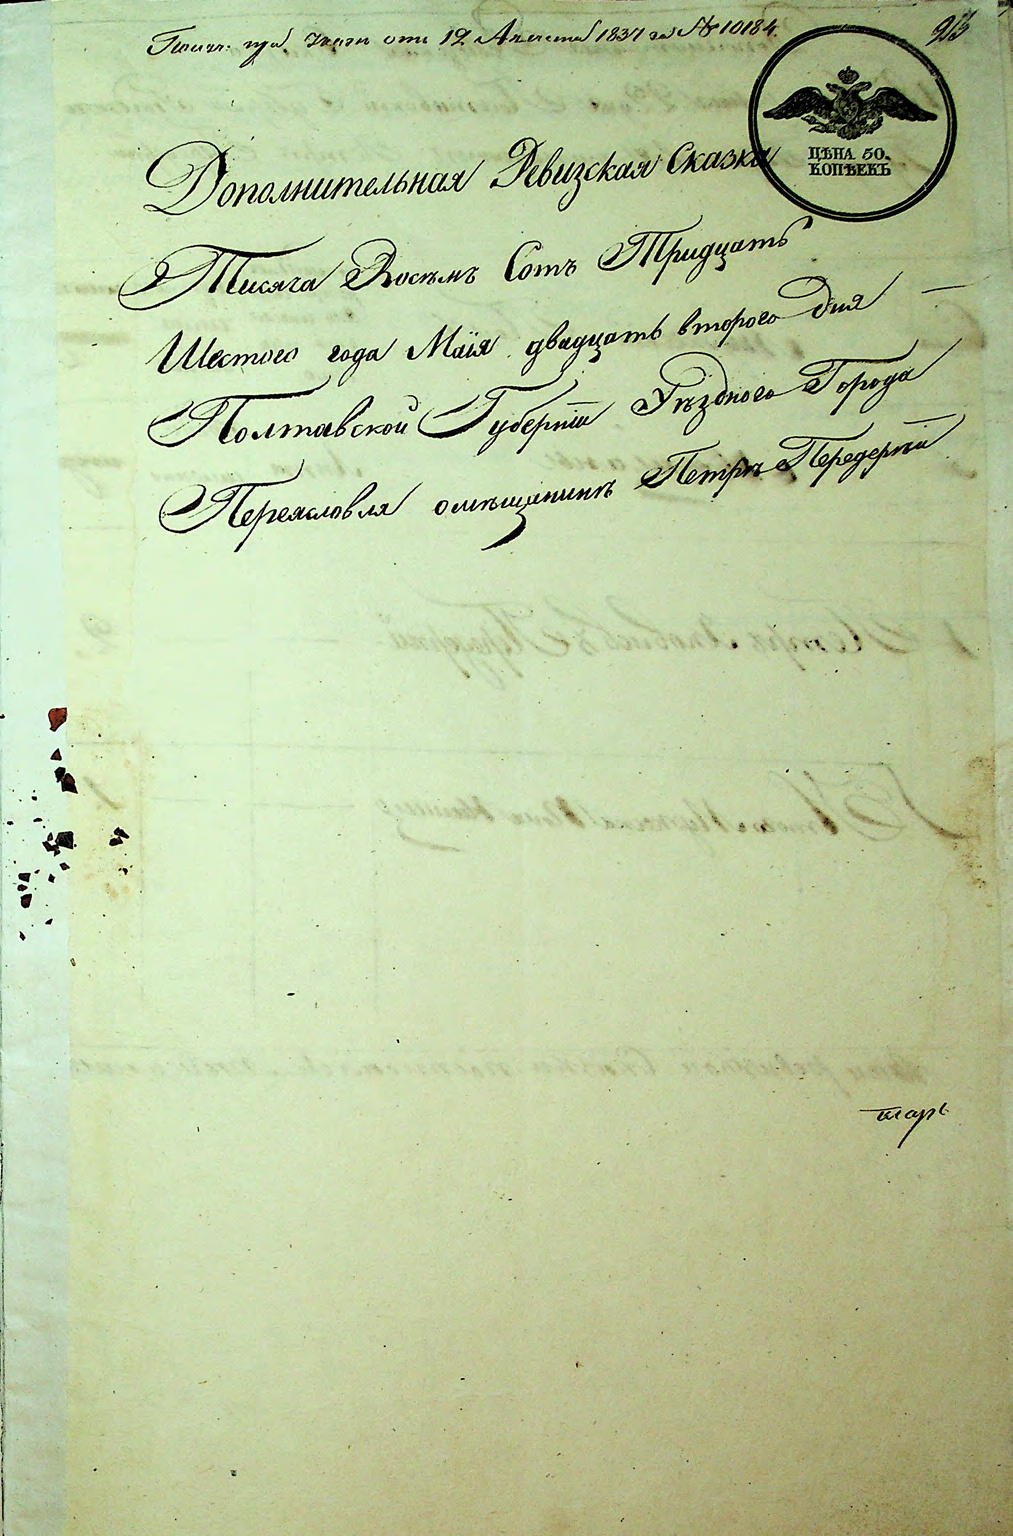 от 12 1837 за № 10184.
ЦѢНА 50.
КОПѢЕКЪ
Дополнительная Ревизская Сказка
Тисяча Восѣмъ Сотъ Тридцать
Шестого года Маія двадцать второго дня
Полтавской Губерніи Уѣздного Города
Переясловля омѣщининѣ Петрѣ Передерѣи